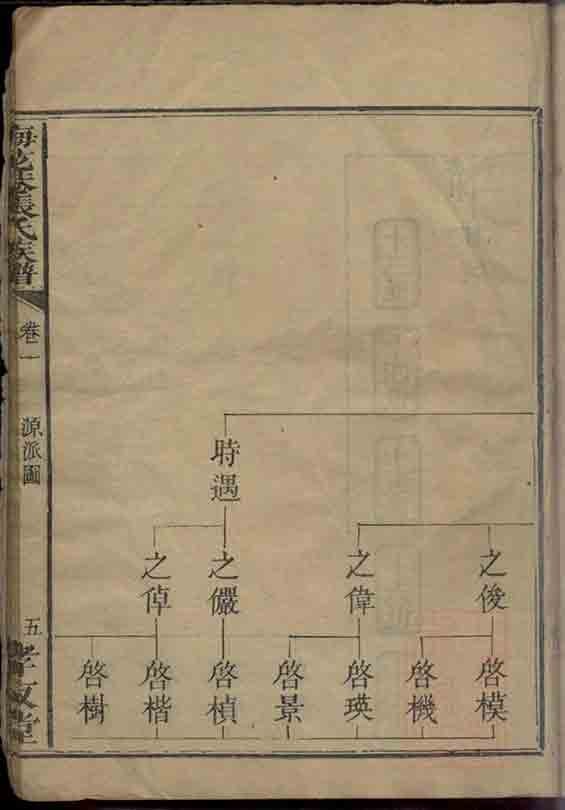 時遇
之俊
之偉
之儼
之倬
啓模
啓機
啓瑛
啓景
啓楨
啓楷
啓樹
張氏族譜
卷一
源派圖
五
孝友堂